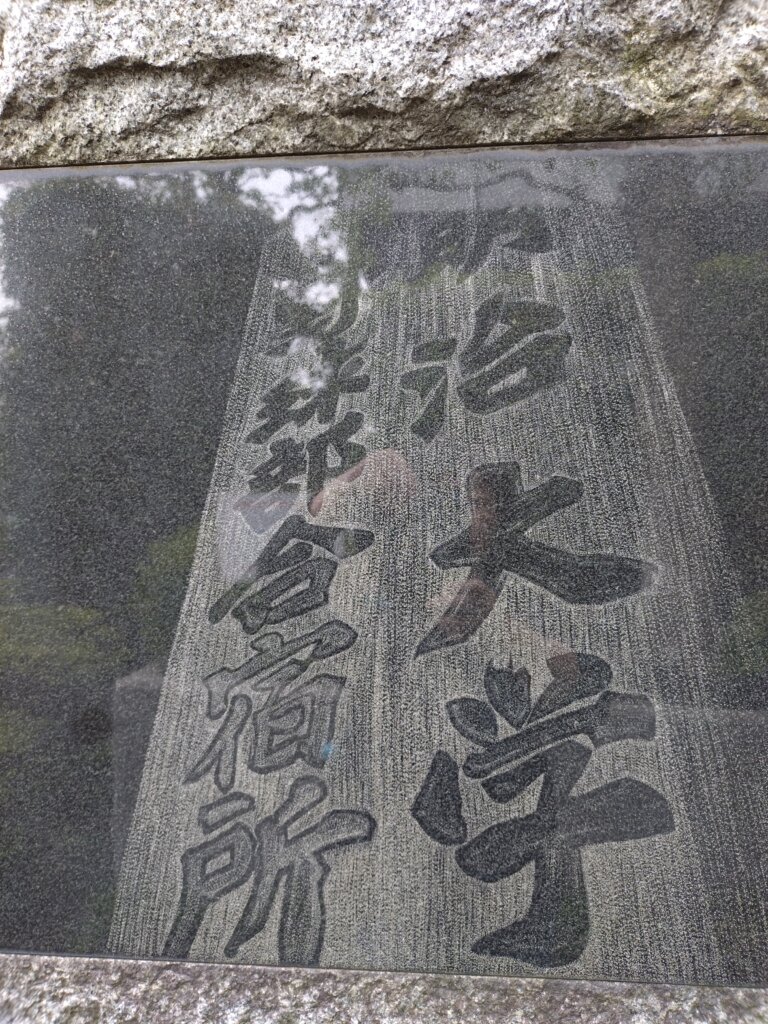 明治大学
野球部合宿所